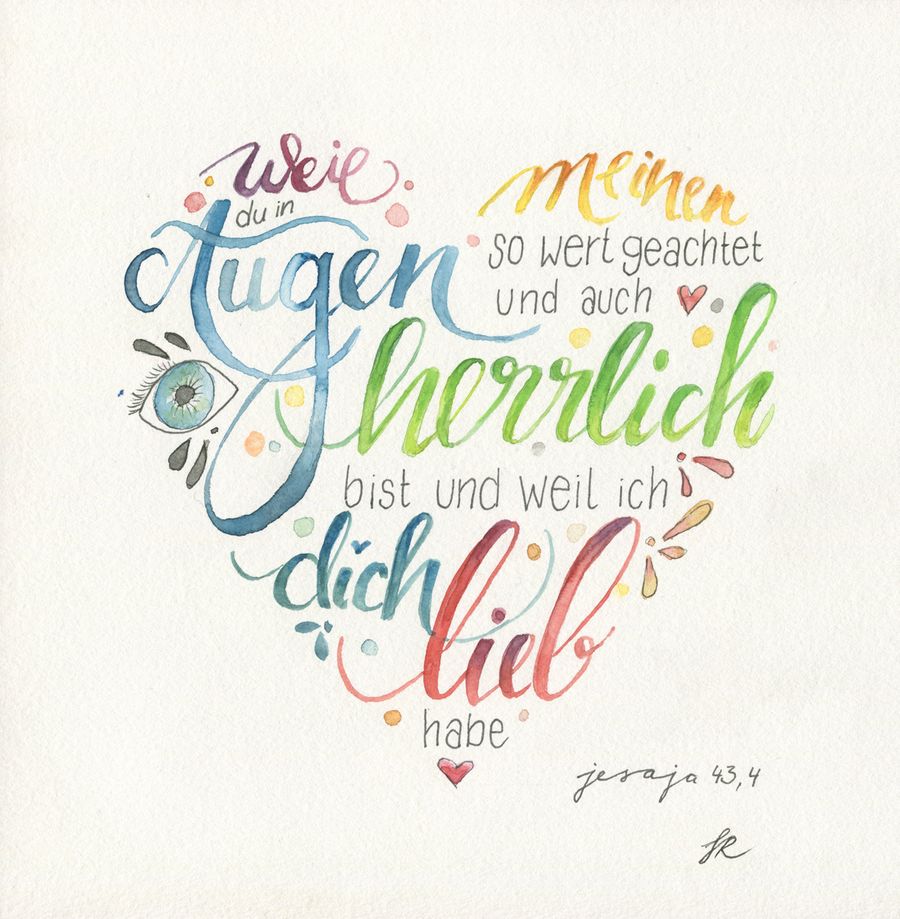 weil
du in
meinen
Augen
so wert geachtet
und auch
herrlich
bist und weil ich
dich
lieb
habe
jesaja 43,4
SR